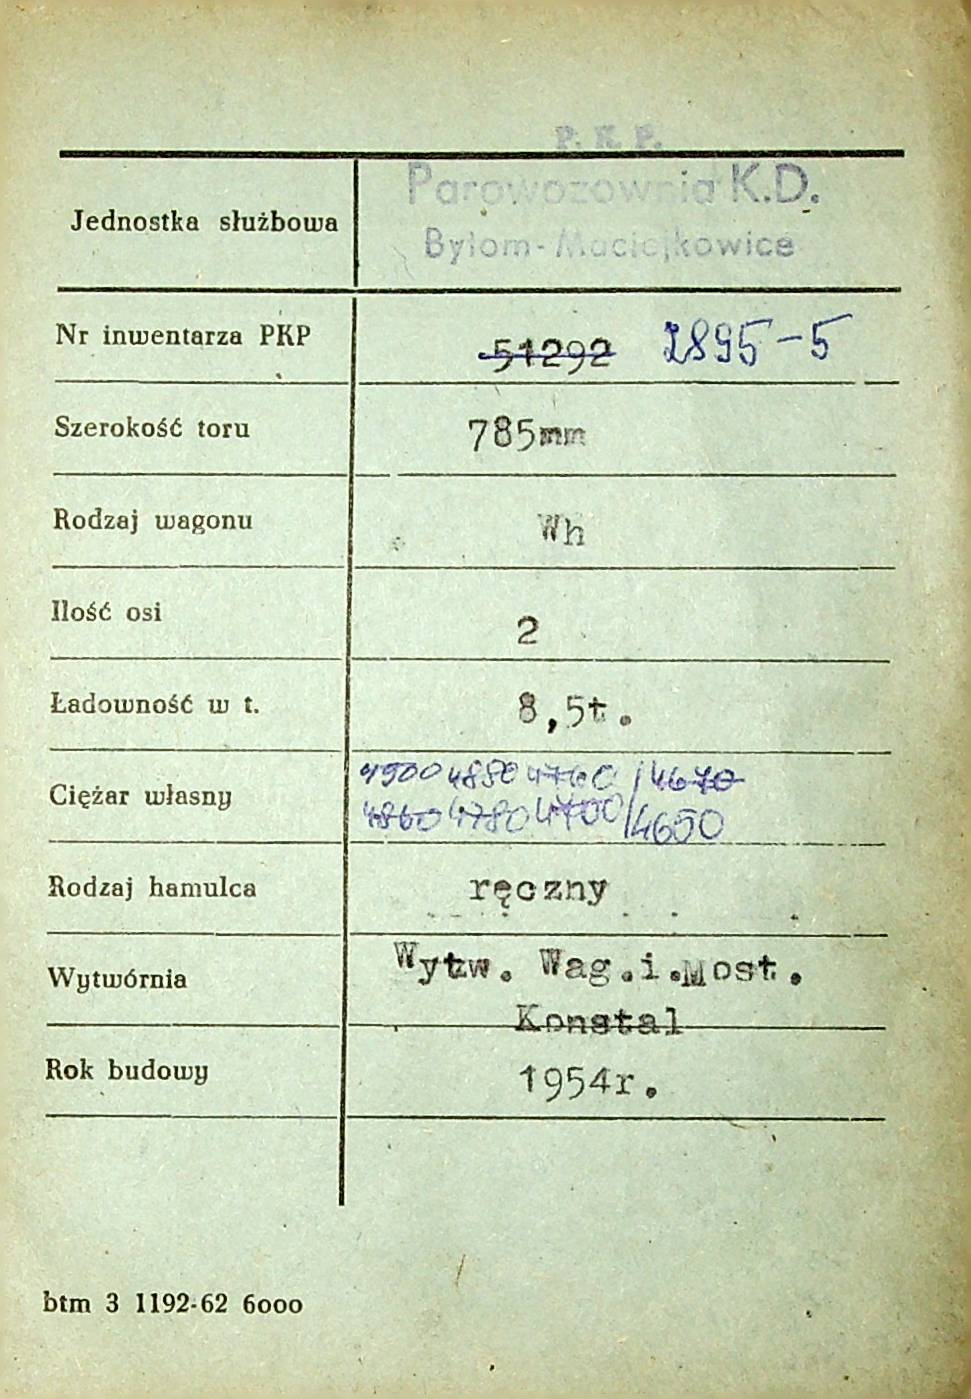 P. K. P.
Parowozownia K.D.
Jednostka służbowa
Bytom-Maciejkowice
Nr inwentarza PKP 51292 2895-5
Szerokość toru 785mm
Rodzaj wagonu Wh
Ilość osi 2
Ładowność w t. 8,5t.
4900 4880 4760 / 4670
Ciężar własny
4860 4780 4700 / 4650
Rodzaj hamulca ręczny
Wytwórnia Wytw. Wag.i.Most.
Konstal
Rok budowy 1954r.
btm 3 1192-62 6000